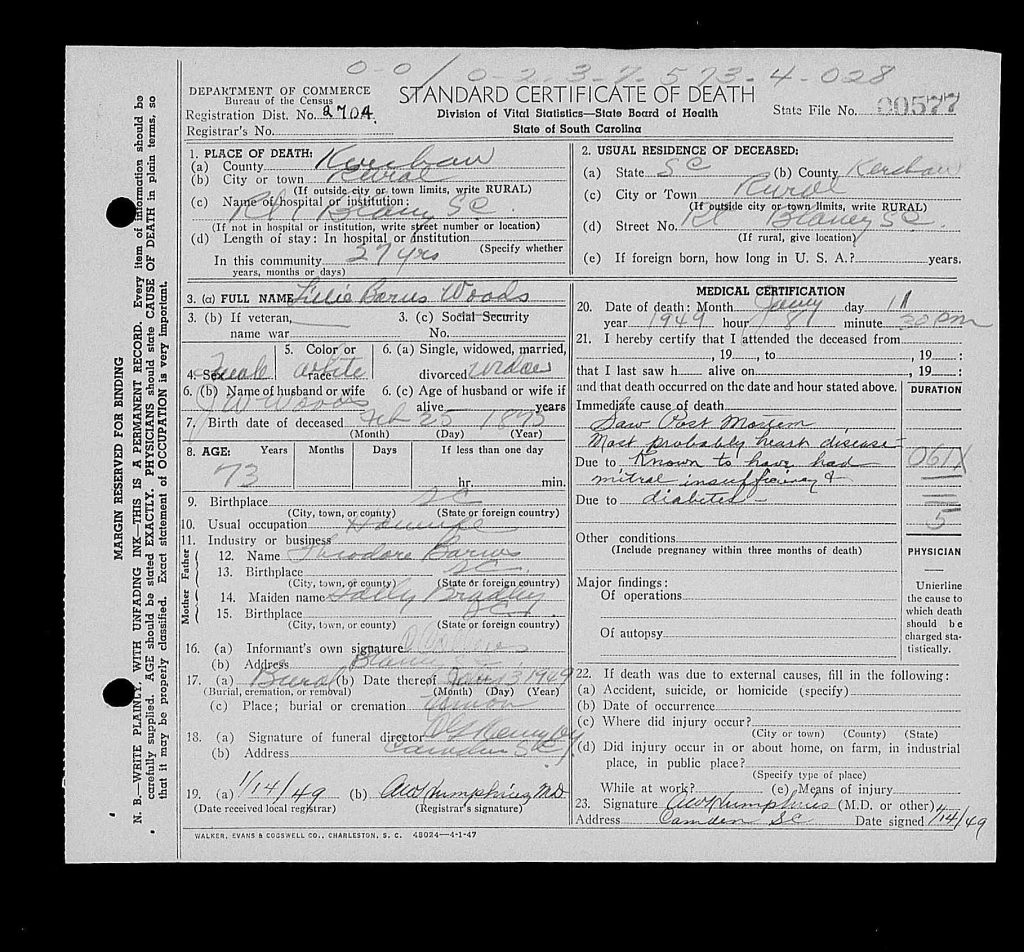 0-0/0-2-3-7-573-4-028
DEPARTMENT OF COMMERCE
Bureau of the Census
Registration Dist. No. 2704
Registrar's No.
STANDARD CERTIFICATE OF DEATH
Division of Vital Statistics—State Board of Health
State of South Carolina
State File No. 00577
MARGIN RESERVED FOR BINDING
N. B.—WRITE PLAINLY, WITH UNFADING INK—THIS IS A PERMANENT RECORD. Every item of information should be
carefully supplied. AGE should be stated EXACTLY. PHYSICIANS should state CAUSE OF DEATH in plain terms, so
that it may be properly classified. Exact statement of OCCUPATION is very important.
1. PLACE OF DEATH:
(a) County Kershaw
(b) City or town Rural
(If outside city or town limits, write RURAL)
(c) Name of hospital or institution:
Rt 1 Blaney SC.
(If not in hospital or institution, write street number or location)
(d) Length of stay: In hospital or institution
(Specify whether
In this community 27 yrs
years, months or days)
2. USUAL RESIDENCE OF DECEASED:
(a) State SC (b) County Kershaw
(c) City or Town Rural
(If outside city or town limits, write RURAL)
(d) Street No. Rt Blaney SC.
(If rural, give location)
(e) If foreign born, how long in U. S. A.? years.
3. (a) FULL NAME Lillie Barns Woods
3. (b) If veteran, 3. (c) Social Security
name war No.
4. Sex Female 5. Color or race White 6. (a) Single, widowed, married, divorced
6. (b) Name of husband or wife 6. (c) Age of husband or wife if
J W Woods alive years
7. Birth date of deceased Feb 25 1875
(Month) (Day) (Year)
8. AGE: Years Months Days If less than one day
73 hr. min.
9. Birthplace SC
(City, town, or county) (State or foreign country)
10. Usual occupation Housewife
11. Industry or business
Father
12. Name Theodore Barnes
13. Birthplace SC.
(City, town, or county) (State or foreign country)
Mother
14. Maiden name Bradley
15. Birthplace SC.
(City, town, or county) (State or foreign country)
16. (a) Informant's own signature
(b) Address Blaney
17. (a) Burial (b) Date thereof Jan 13 1949
(Burial, cremation, or removal) (Month) (Day) (Year)
(c) Place; burial or cremation Union
18. (a) Signature of funeral director
(b) Address Camden S C
19. (a) 1/14/49 (b) AW Humphries M.D.
(Date received local registrar) (Registrar's signature)
MEDICAL CERTIFICATION
20. Date of death: Month day 11
year 1949 hour 8 minute 30 PM
21. I hereby certify that I attended the deceased from
, 19 , to , 19 :
that I last saw h alive on , 19 :
and that death occurred on the date and hour stated above.
DURATION
Immediate cause of death
Saw Post Mortem
Most probably heart disease-
Due to Known to have had
mitral insufficiency &
Due to diabetes -
061X
5
Other conditions
(Include pregnancy within three months of death)
PHYSICIAN
Major findings:
Of operations
Of autopsy
Unierline
the cause to
which death
should be
charged sta-
tistically.
22. If death was due to external causes, fill in the following:
(a) Accident, suicide, or homicide (specify)
(b) Date of occurrence
(c) Where did injury occur?
(City or town) (County) (State)
(d) Did injury occur in or about home, on farm, in industrial
place, in public place?
(Specify type of place)
While at work? (e) Means of injury
23. Signature AW Humphries (M.D. or other)
Address Camden SC Date signed 1/14/49
WALKER, EVANS & COGSWELL CO., CHARLESTON, S. C. 48024—4-1-47